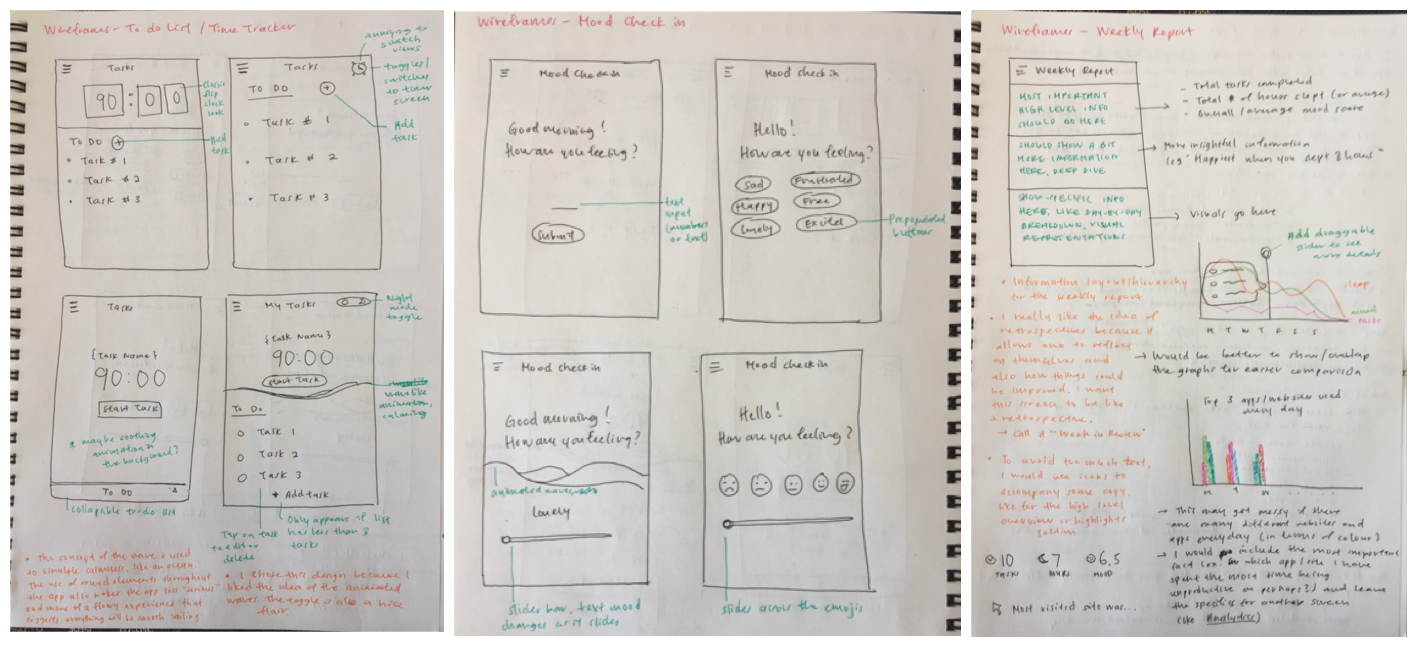 Wireframes - To do List / Time Tracker
annoying to
switch
views
Tasks
90:00
classic
flip
clock
look
TO DO +
Add
task
• Task # 1
• Task # 2
• Task # 3
Tasks
toggles/
switches
to timer
screen
TO DO +
• Task # 1
Add
task
• Task # 2
• Task # 3
Tasks
{Task Name}
90:00
Start Task
* maybe soothing
animation in
the background?
TO DO
collapable to-do list
My Tasks
Night
mode
toggle
{Task Name}
90:00
Start Task
wavelike
animation,
calming
To Do
Task 1
Task 2
Task 3
+ Add task
Only appears if list
has less than 3
tasks
Tap on task
to edit or
delete
• The concept of the wave is used
to simulate calmness, like an ocean.
The use of round elements throughout
the app also makes the app less "serious"
and more of a flowy experience that
suggests everything will be smooth sailing.
• I chose this design because I
liked the idea of the animated
waves. The toggle is also a nice
flair.
Wireframes - Mood Check in
Mood Check in
Good morning!
How are you feeling?
text
input
(numbers
or text)
Submit
Mood Check in
Hello!
How are you feeling?
Sad Frustrated
Happy Free
Lonely Excited
Prepopulated
buttons
Mood Check in
Good morning!
How are you feeling?
animated waves
Lonely
slider bar, text mood
changes as it slides
Mood Check in
Hello!
How are you feeling?
slides across the emojis
Wireframes - Weekly Report
Weekly Report
MOST IMPORTANT
HIGH LEVEL INFO
SHOULD GO HERE
- Total tasks completed
- Total # of hours slept (or average)
- Overall/average mood score
SHOULD SHOW A BIT
MORE INFORMATION
HERE, DEEP DIVE
More insightful information
(eg "Happiest when you slept 8 hours"
SHOW SPECIFIC INFO
HERE, LIKE DAY-BY-DAY
BREAKDOWN, VISUAL
REPRESENTATIONS
Visuals go here
Add draggable
slider to see
more details
sleep
mood
tasks
M T W T F S S
• Information layout/hierarchy
for the weekly report
• I really like the idea of
retrospectives because it
allows one to reflect
on themselves and
also how things could
be improved. I want
this screen to be like
a retrospective.
→ Call it "Week in Review"
→ Would be better to show/overlap
the graphs for easier comparison
Top 3 apps/websites used
every day
M T W
• To avoid too much text,
I would use icons to
accompany some copy,
like for the high level
overview or highlights
section
10 7 6.5
TASKS HOURS MOOD
Most visited site was...
→ This may get messy if there
are many different websites and
apps everyday (in terms of colour)
→ I would include the most important
fact (ex. which app/site I have
spent the most time being
unproductive on perhaps?) and leave
the specifics for another screen
(like Analytics)